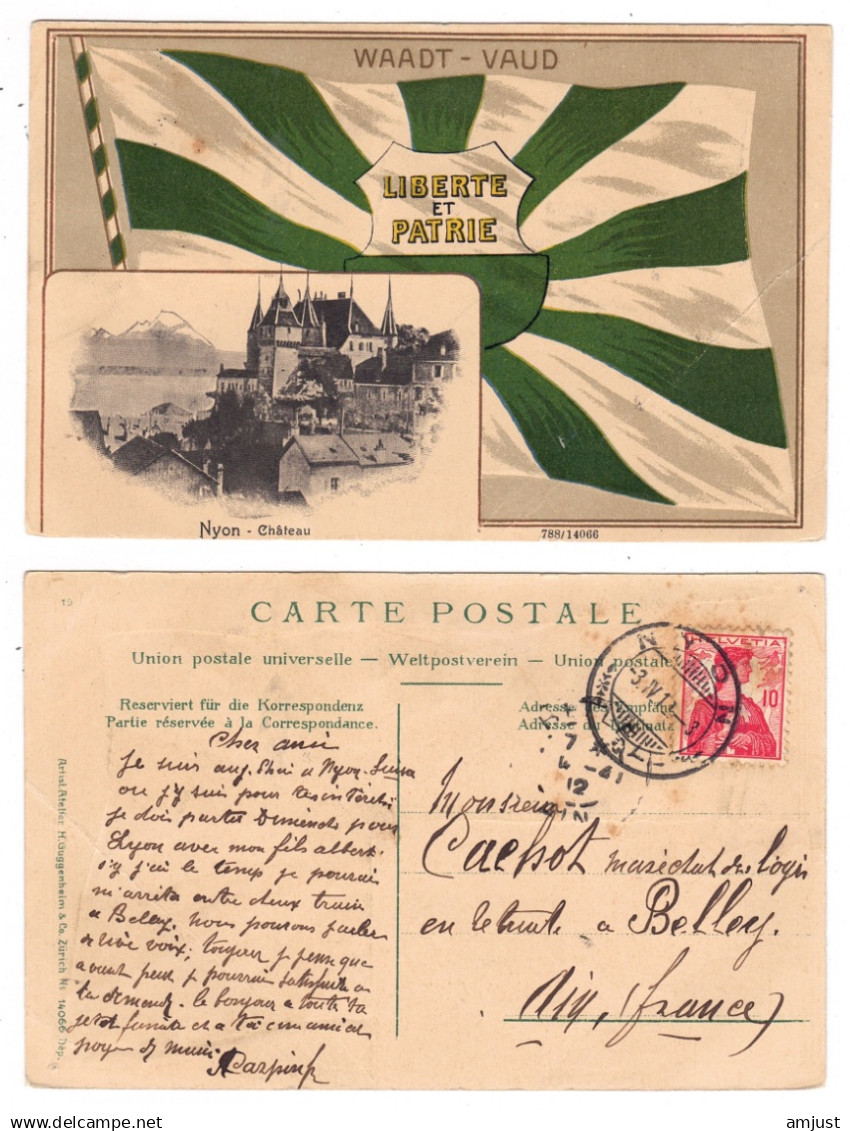 WAADT - VAUD
LIBERTE
ET
PATRIE
Nyon - Château
788/14066
19
CARTE POSTALE
Union postale universelle — Weltpostverein — Union postale
Reserviert für die Korrespondenz
Partie réservée à la Correspondance.
Adresse des Empfäng
Adresse du
HELVETIA
10
NYON
3.IV.12.-3
7
4 -41
12
Cher ami
Je suis auj. d'hui a Nyon. Suisse
ou j'y suis pour
je dois partir Dimanche pour
Lyon avec mon fils albert.
s'y j'ai le temps je pourrai
m'arrêter entre deux train
a Belley. nous pourrons parler
de vive voix, toujour je pense que
avant peu je pourrai satisfaire a
ta demande. le bonjour a toute ta
petit famille et a toi
de main
Monsieur
Cachot maréchal des logis
en retraite a Belley.
Ain, (france)
Artist. Atelier H. Guggenheim & Co. Zürich № 14066 Dep.
amjust